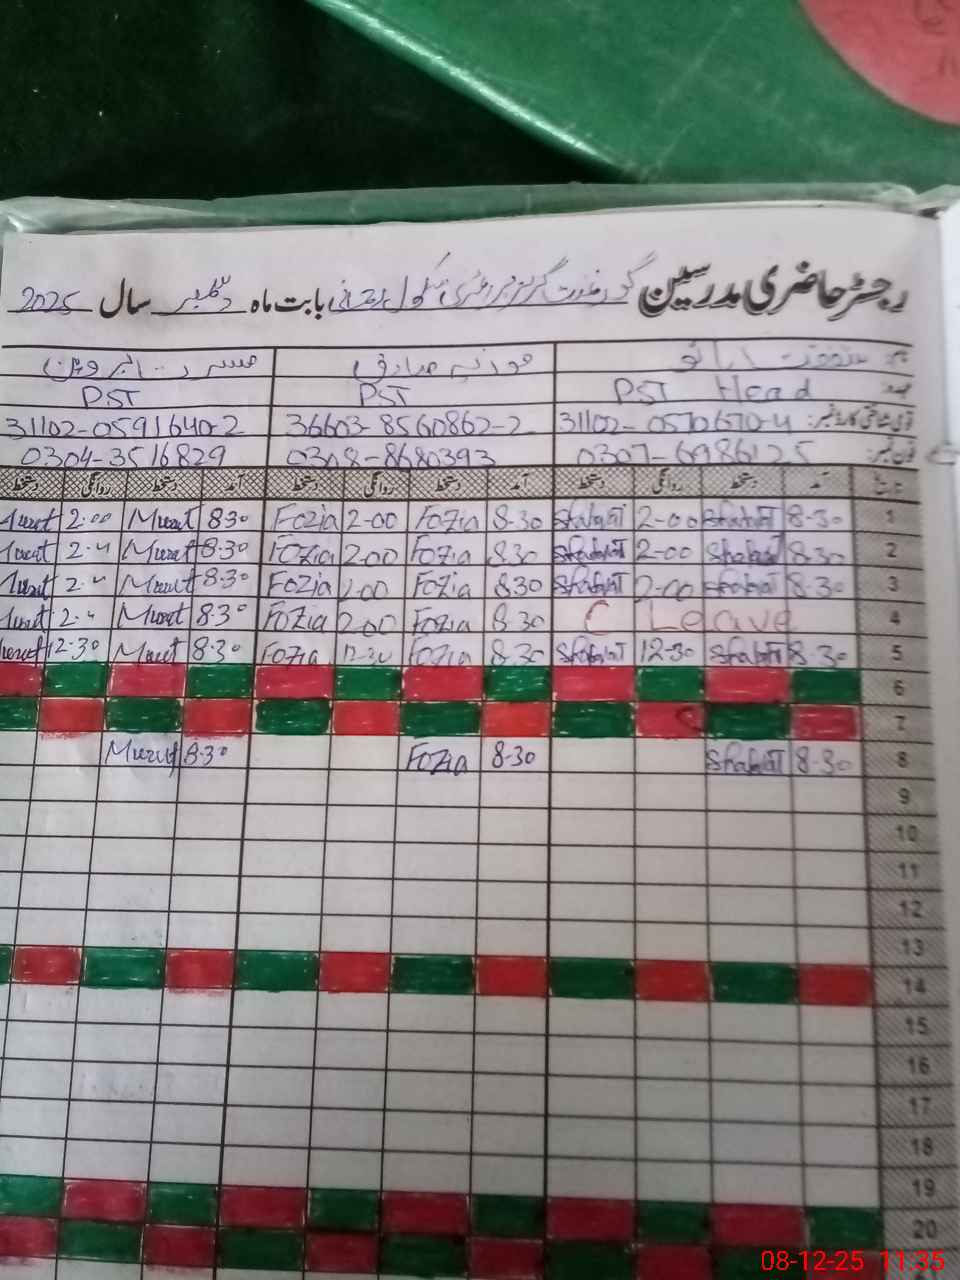 رجسٹر حاضری مدرسین گورنمنٹ گرلز پرائمری سکول بابت ماہ دسمبر سال 2025
نام: شفقت بانو فوزیہ صادق مسرت پروین
عہدہ: PST Head PST PST
قومی شناختی کارڈ نمبر: 31102-0570670-4 36603-8560862-2 31102-0591640-2
فون نمبر: 0307-6986125 0308-8680393 0304-3516829
تاریخ آمد دستخط روانگی دستخط آمد دستخط روانگی دستخط آمد دستخط روانگی دستخط
1 8-30 Shafqat 2-00 Shafqat 8-30 Fozia 2-00 Fozia 830 Musrat 2-00 Musrat
2 8-30 Shafqat 2-00 Shafqat 830 Fozia 2.00 Fozia 8-30 Musrat 2-4 Musrat
3 8-30 Shafqat 2-00 Shafqat 830 Fozia 2.00 Fozia 8-30 Musrat Musrat
4 C Leave 8.30 Fozia 200 Fozia 8.30 Musrat Musrat
5 8-30 Shafqat 12-30 Shafqat 8.30 Fozia 12-30 Fozia 8-30 Musrat 12-30 Musrat
6
7
8 8-30 Shafqat 8-30 Fozia 8-30 Musrat
9
10
11
12
13
14
15
16
17
18
19
20
08-12-25 11:35